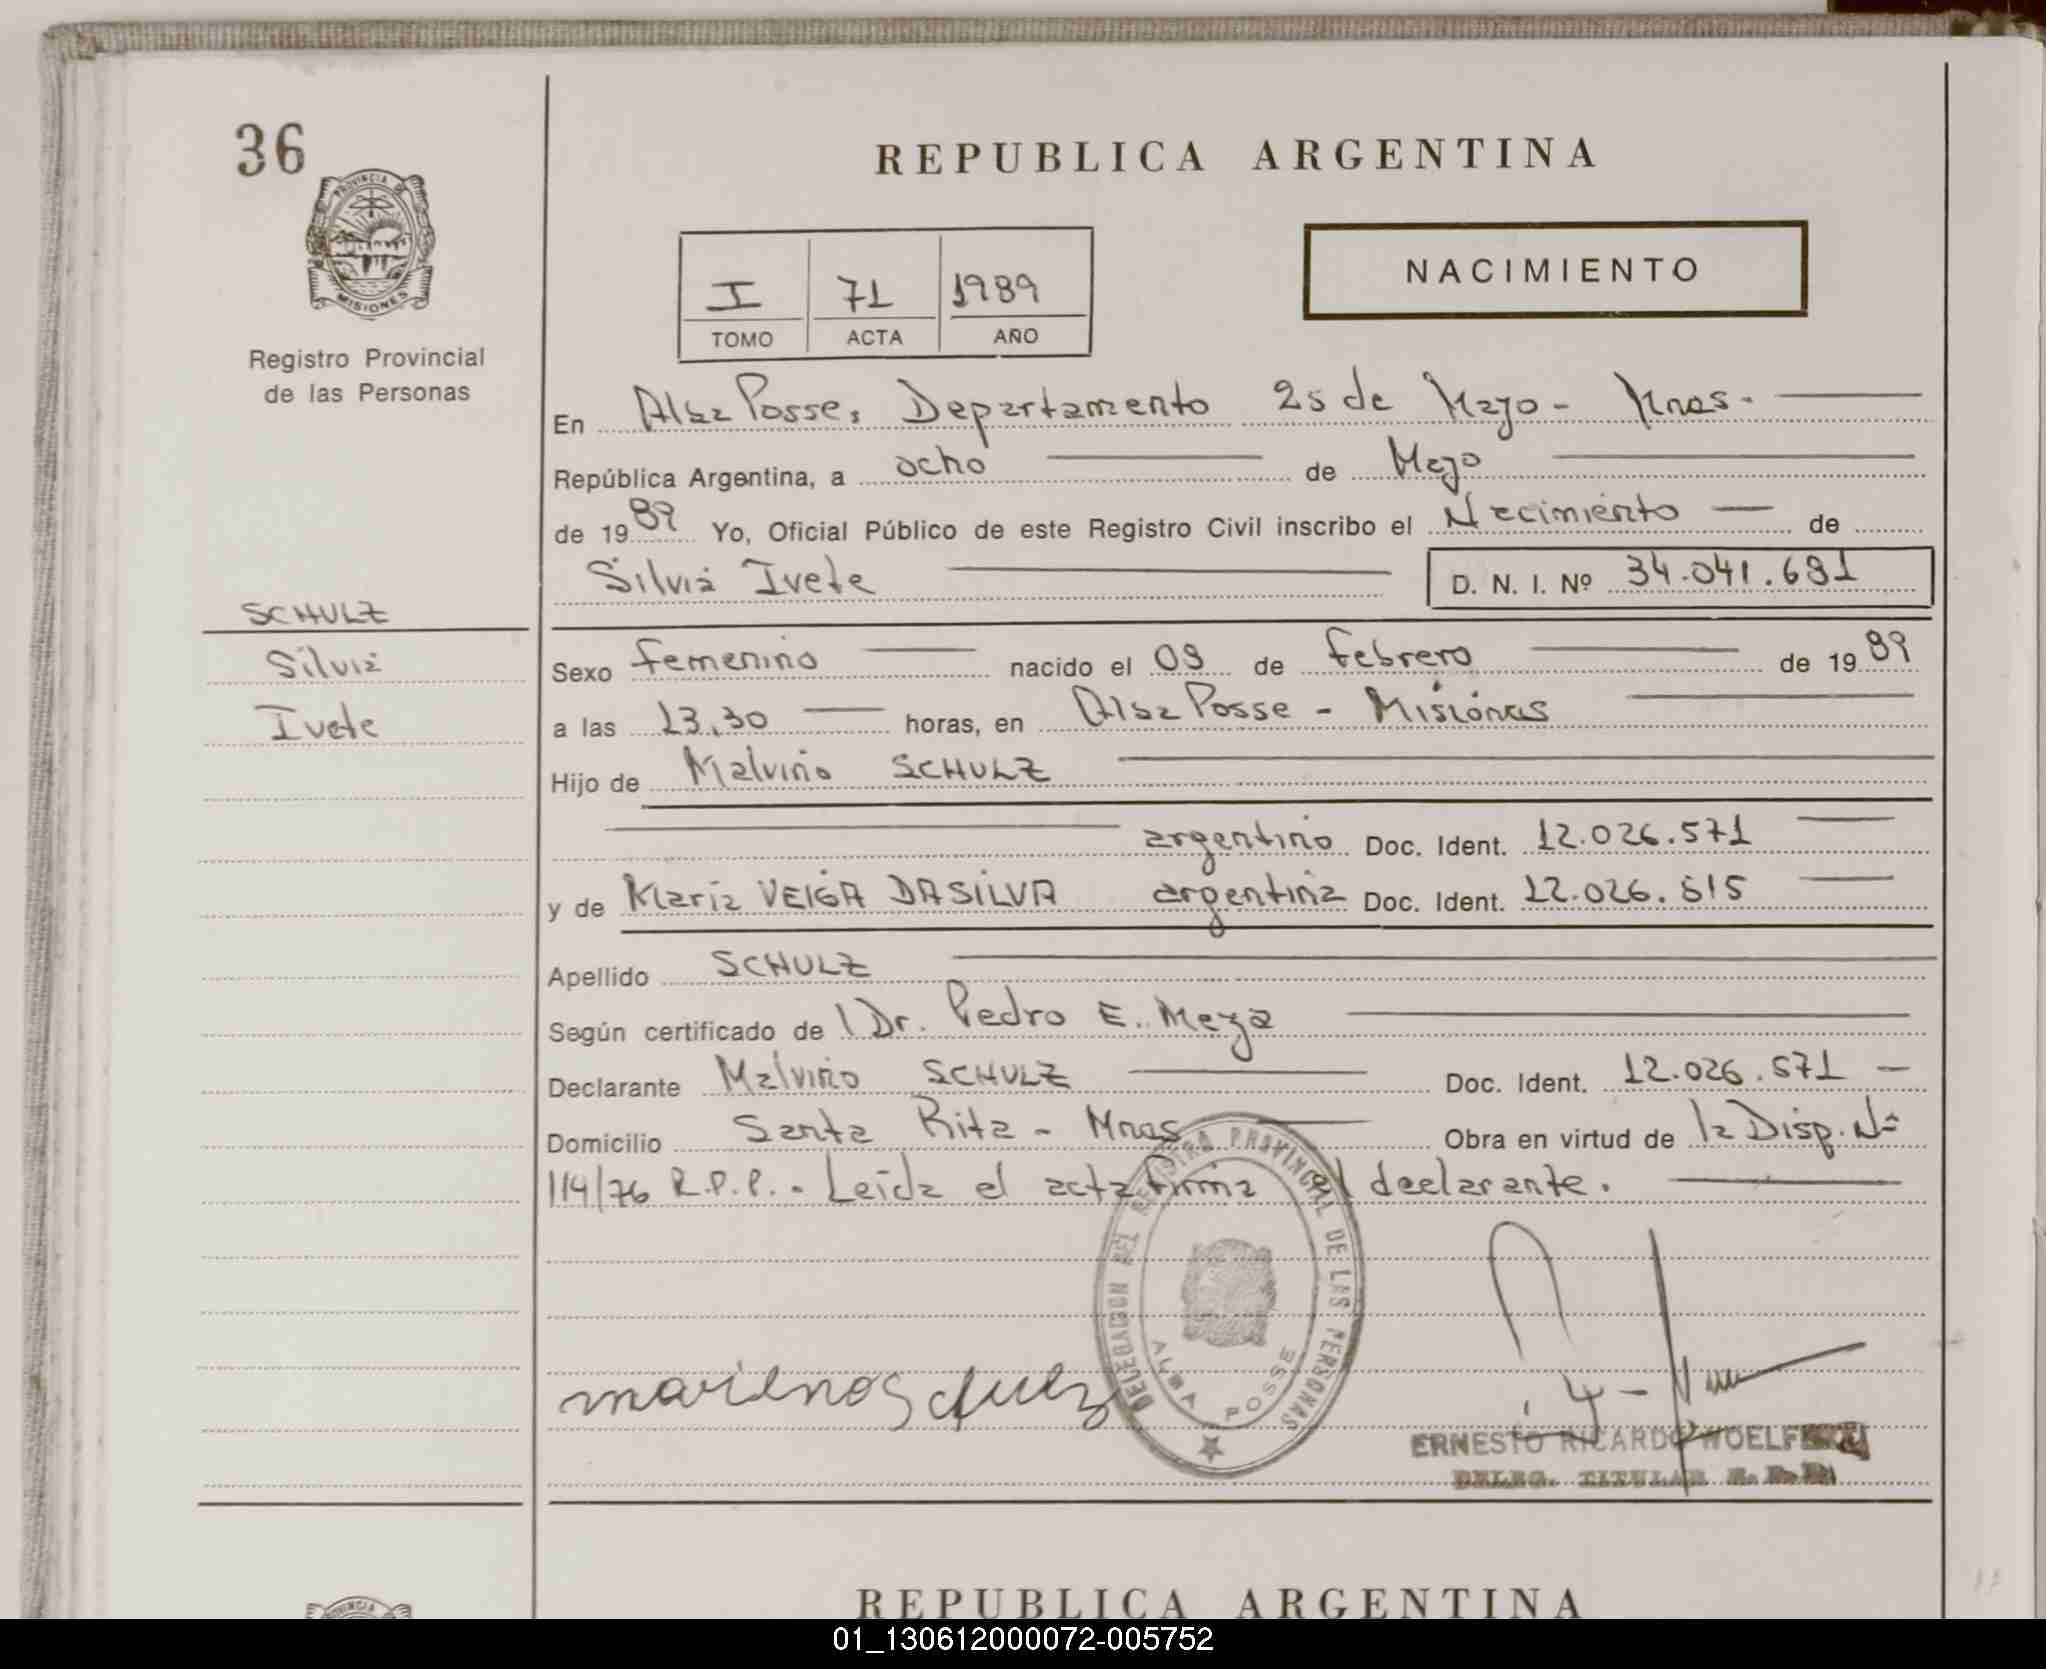 36
PROVINCIA DE
MISIONES
Registro Provincial
de las Personas
REPUBLICA ARGENTINA
I 71 1989
TOMO ACTA AÑO
NACIMIENTO
En Alba Posse, Departamento 25 de Mayo - Mnas.
República Argentina, a ocho de Mayo
de 1989 Yo, Oficial Público de este Registro Civil inscribo el Nacimiento de
Silvia Ivete D. N. I. Nº 34.041.691
SCHULZ
Silvia
Ivete
Sexo femenino nacido el 09 de febrero de 1989
a las 13,30 horas, en Alba Posse - Misiones
Hijo de Malvino SCHULZ
argentino Doc. Ident. 12.026.571
y de Maria VEIGA DASILVA argentina Doc. Ident. 12.026.515
Apellido SCHULZ
Según certificado de l Dr. Pedro E. Meza
Declarante Malvino SCHULZ Doc. Ident. 12.026.571
Domicilio Santa Rita - Mnas Obra en virtud de la Disp. Nº
114/76 R.P.P. - Leida el acta firma el declarante.
DELEGACION DEL REGISTRO PROVINCIAL DE LAS PERSONAS
ALBA POSSE
ERNESTO RICARDO
DELEG. TITULAR
REPUBLICA ARGENTINA
01_130612000072-005752